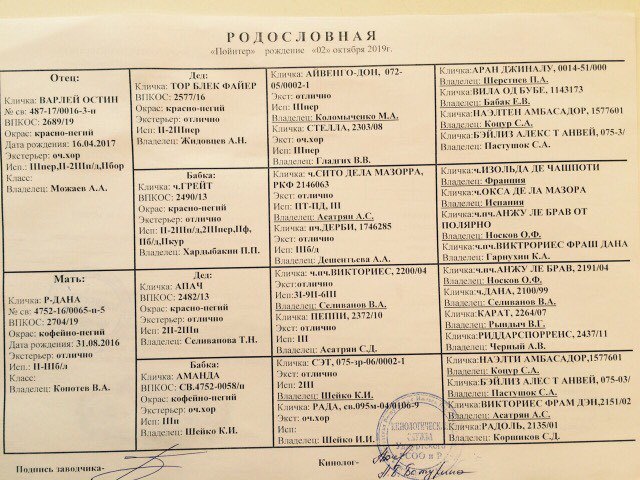 РОДОСЛОВНАЯ
«Пойнтер» рождение «02» октября 2019г.
Отец:
Кличка: ВАРЛЕЙ ОСТИН
№ св: 487-17/0016-3-н
ВПКОС: 2689/19
Окрас: красно-пегий
Дата рождения: 16.04.2017
Экстерьер: оч.хор
Исп.: Шпер,II-2Шп/д,Пбор
Класс:
Владелец: Можаев А.А.
Мать:
Кличка: Р-ДАНА
№ св: 4752-16/0065-п-5
ВПКОС: 2704/19
Окрас: кофейно-пегий
Дата рождения: 31.08.2016
Экстерьер: отлично
Исп: II-Шб/д
Класс:
Владелец: Копотев В.А.
Дед:
Кличка: ТОР БЛЕК ФАЙЕР
ВПКОС: 2577/16
Окрас: красно-пегий
Экстерьер: отлично
Исп: II-2Шпер
Владелец: Жидовцев А.Н.
Бабка:
Кличка: ч.ГРЕЙТ
ВПКОС: 2490/13
Окрас: красно-пегий
Экстерьер: отлично
Исп: II-2Шп/д,2Шпер,Пф,
Пб/д,Пкур
Владелец: Хардыбакин П.П.
Дед:
Кличка: АПАЧ
ВПКОС: 2482/13
Окрас: красно-пегий
Экстерьер: отлично
Исп: 2II-2Шп
Владелец: Селиванова Т.Н.
Бабка:
Кличка: АМАНДА
ВПКОС: СВ.4752-0058/п
Окрас: кофейно-пегий
Экстерьер: оч.хор
Исп: Шп
Владелец: Шейко К.И.
Кличка: АЙВЕНГО-ДОН, 072-
05/0002-1
Экст: отлично
Исп: Шпер
Владелец: Коломыченко М.А.
Кличка: СТЕЛЛА, 2303/08
Экст: оч.хор
Исп: Шпер
Владелец: Гладгих В.В.
Кличка: ч.СИТО ДЕЛА МАЗОРРА,
РКФ 2146063
Экст: отлично
Исп: ПТ-ПД, III
Владелец: Асатрян А.С.
Кличка: пч.ДЕРБИ, 1746285
Экст: отлично
Исп: Шб/д
Владелец: Дешентьева А.А.
Кличка: ч.пч.ВИКТОРИЕС, 2200/04
Экст:отлично
Исп: 3I-9П-6Ш
Владелец: Селиванов В.А.
Кличка: ПЕППИ, 2372/10
Экст: отлично
Исп: III
Владелец: Асатрян С.Д.
Кличка: СЭТ, 075-зр-06/0002-1
Экст: отлично
Исп: 2Ш
Владелец: Шейко К.И.
Кличка: РАДА, св.095м-04/0106-9
Экст: оч.хор
Исп:
Владелец: Шейко И.И.
Кличка:АРАН ДЖИНАЛУ, 0014-51/000
Владелец: Шерстнев П.А.
Кличка:ВИЛА ОД БУБЕ, 1143173
Владелец: Бабак Е.В.
Кличка:НАЭЛТЕН АМБАСАДОР, 1577601
Владелец: Коцур С.А.
Кличка:БЭЙЛИЗ АЛЕКС Т АНВЕЙ, 075-3/
Владелец: Пастушок С.А.
Кличка:ч.ИЗОЛЬДА ДЕ ЧАШПОТИ
Владелец: Франция
Кличка:ч.ОКСА ДЕ ЛА МАЗОРА
Владелец: Испания
Кличка:ч.пч.АНЖУ ЛЕ БРАВ ОТ
ПОЛЯРНО
Владелец: Носков О.Ф.
Кличка:ч.пч.ВИКТРОРИЕС ФРАШ ДАНА
Владелец: Гарнухин К.А.
Кличка:ч.пч.АНЖУ ЛЕ БРАВ, 2191/04
Владелец: Носков О.Ф.
Кличка:ч.ДАНА, 2100/99
Владелец: Селиванов В.А.
Кличка:КАРАТ, 2264/07
Владелец: Рындыч В.Г,
Кличка:РИДДАРСПОРРЕНС, 2437/11
Владелец: Черный А.В.
Кличка:НАЭЛТИ АМБАСАДОР,1577601
Владелец: Коцур С.А.
Кличка:БЭЙЛИЗ АЛЕС Т АНВЕЙ, 075-03/
Владелец: Пастушок С.А.
Кличка:ВИКТОРИЕС ФРАМ ДЭН,2151/02
Владелец: Асатрян А.С.
Кличка:РАДОЛЬ, 2135/01
Владелец: Коршиков С.Д.
Подпись заводчика-
Кинолог-